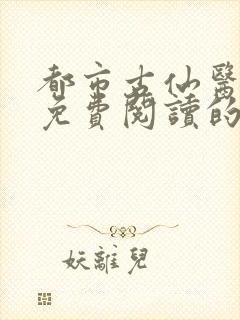 都市古仙醫
免費閱讀的
妖離兒